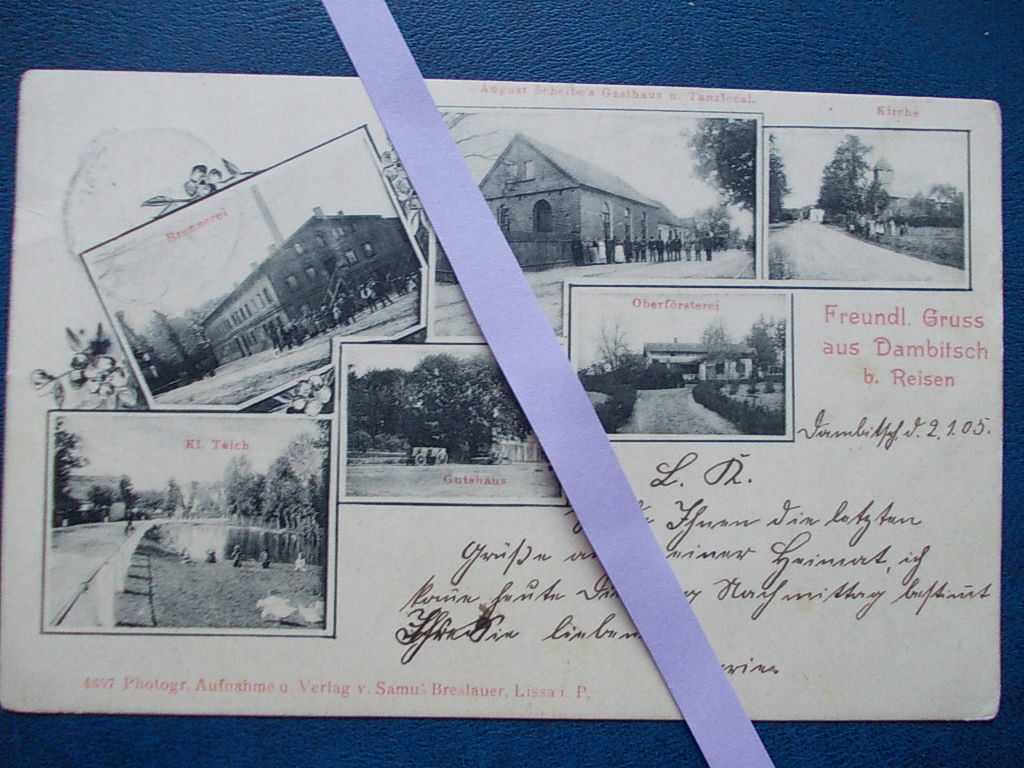 August Scheibe's Gasthaus u. Tanzlocal.
Kirche
Brennerei
Oberförsterei
Freundl. Gruss
aus Dambitsch
b. Reisen
Kl. Teich
Gutshaus
Dambitsch d. 2.1.05.
L. K.
Ihnen die letzten
Grüße einer Heimat, ich
heute Nachmittag bestimt
lieben
4657 Photogr. Aufnahme u. Verlag v. Samu. Breslauer, Lissa i. P.